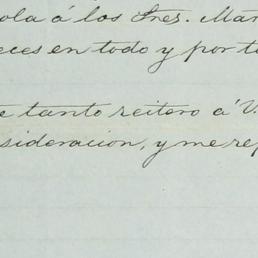 ola á los Sres. Mar
eces en todo y por t
e tanto reitero á V.
sideracion, y me rep